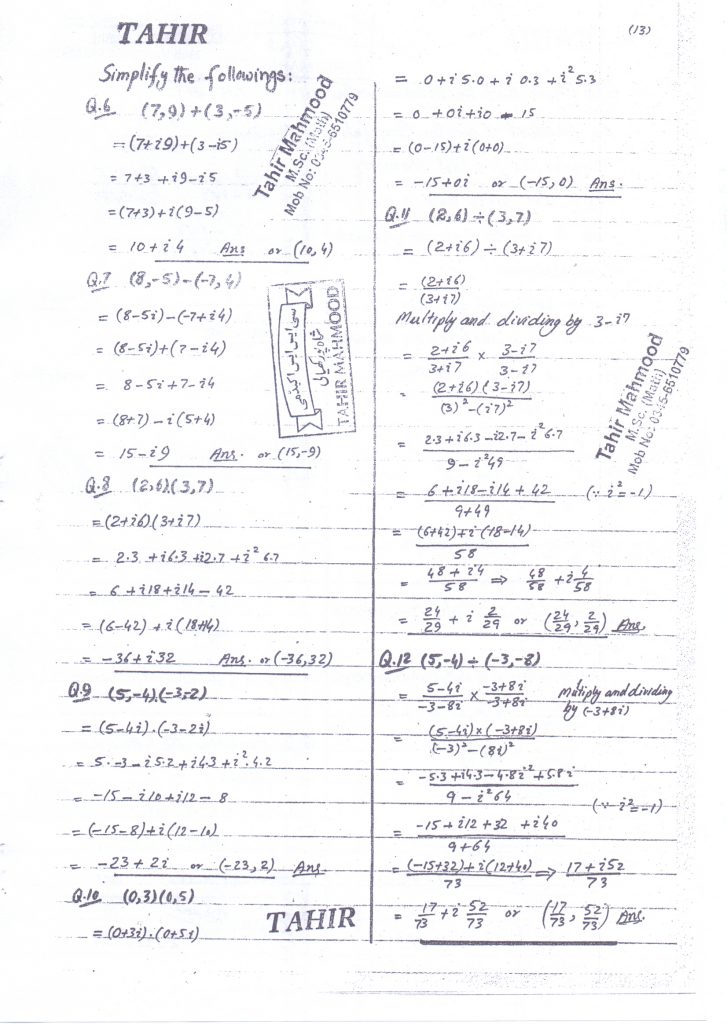 TAHIR
(13)
Simplify the followings:
Q.6 (7,9)+(3,-5)
=(7+i9)+(3-i5)
= 7+3 +i9-i5
=(7+3)+i(9-5)
= 10+i4 Ans or (10,4)
Q.7 (8,-5)-(-7,4)
= (8-5i)-(-7+i4)
= (8-5i)+(7-i4)
= 8-5i+7-i4
= (8+7)-i(5+4)
= 15-i9 Ans. or (15,-9)
Q.8 (2,6)(3,7)
=(2+i6)(3+i7)
= 2.3 +i6.3+i2.7+i² 6.7
= 6 +i18+i14-42
= (6-42)+i(18+14)
= -36+i32 Ans. or (-36,32)
Q.9 (5,-4).(-3,-2)
= (5-4i).(-3-2i)
= 5.-3-i5.2+i4.3+i².4.2
= -15-i10+i12-8
= (-15-8)+i(12-10)
= -23+2i or (-23,2) Ans
Q.10 (0,3)(0,5)
=(0+3i).(0+5i)
TAHIR
Tahir Mahmood
M.Sc. (Math)
Mob No: 0345-6510779
سی ایس ایس اکیڈمی
TAHIR MAHMOOD
= 0+i 5.0+i 0.3 +i² 5.3
= 0 +0i+i0 - 15
= (0-15)+i(0+0)
= -15+0i or (-15,0) Ans.
Q.11 (2,6)÷(3,7)
= (2+i6)÷(3+i7)
= (2+i6)/(3+i7)
Multiply and dividing by 3-i7
= 2+i6/3+i7 x 3-i7/3-i7
= (2+i6)(3-i7)/(3)²-(i7)²
= 2.3+i6.3-i2.7-i²6.7/9-i²49
= 6+i18-i14+42/9+49 (∵ i²=-1)
= (6+42)+i(18-14)/58
= 48+i4/58 ⇒ 48/58 +i 4/58
= 24/29 + i 2/29 or (24/29, 2/29) Ans,
Q.12 (5,-4)÷(-3,-8)
= 5-4i/-3-8i x -3+8i/-3+8i Mutiply and dividing
by (-3+8i)
= (5-4i)x(-3+8i)/(-3)²-(8i)²
= -5.3+i4.3-4.8i²+5.8i/9-i²64
(∵ i²=-1)
= -15+i12+32+i40/9+64
= (-15+32)+i(12+40)/73 ⇒ 17+i52/73
= 17/73 +i 52/73 or (17/73, 52/73) Ans.
Tahir Mahmood
M.Sc. (Math)
Mob No: 0345-6510779